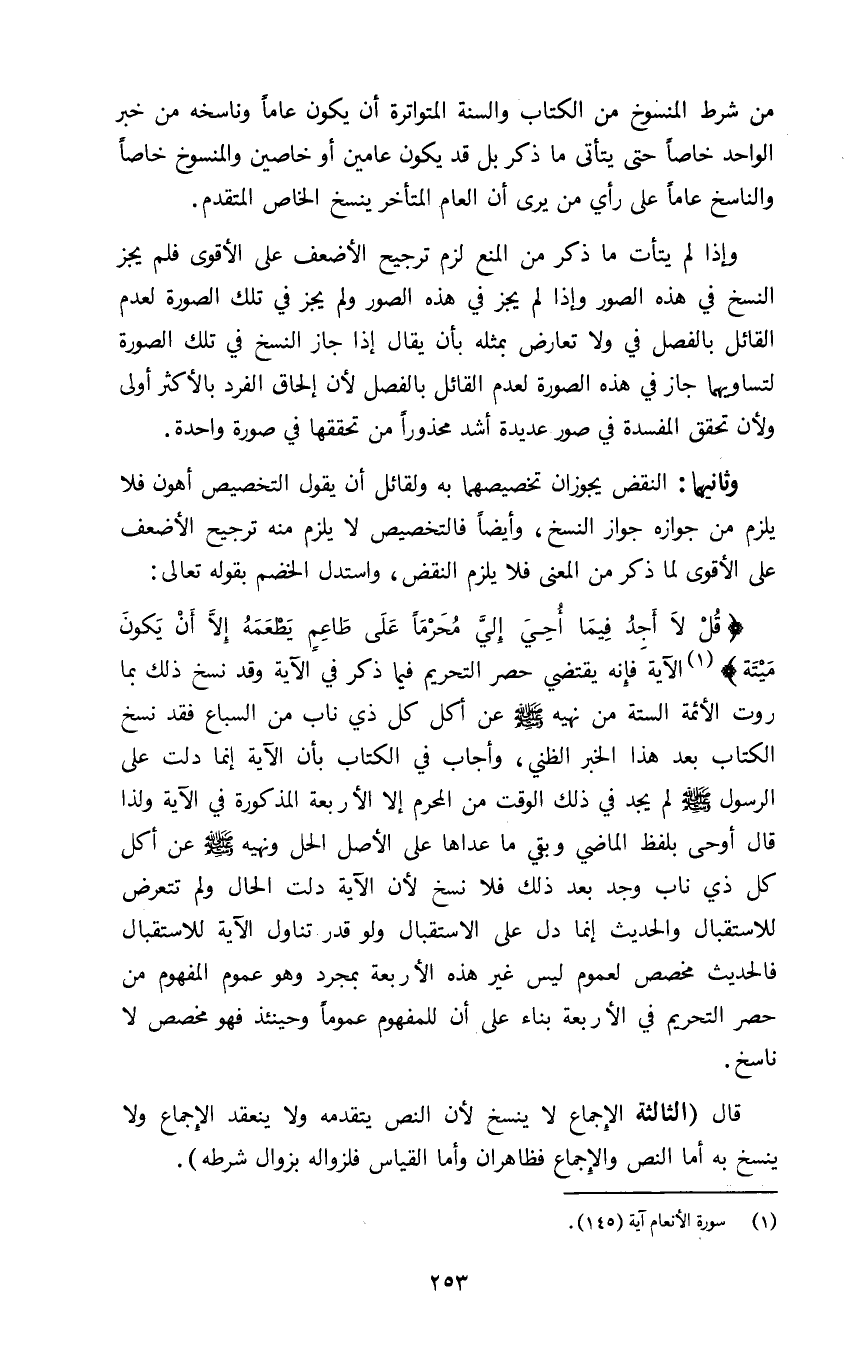 من شرط المنسوخ من الكتاب والسنة المتواترة أن يكون عاماً وناسخه من خبر
الواحد خاصاً حتى يتأتى ما ذكر بل قد يكون عامين أو خاصين والمنسوخ خاصاً
والناسخ عاماً على رأي من يرى أن العام المتأخر ينسخ الخاص المتقدم.
وإذا لم يتأت ما ذكر من المنع لزم ترجيح الأضعف على الأقوى فلم يجز
النسخ في هذه الصور وإذا لم يجز في هذه الصور ولم يجز في تلك الصورة لعدم
القائل بالفصل في ولا تعارض بمثله بأن يقال إذا جاز النسخ في تلك الصورة
لتساويها جاز في هذه الصورة لعدم القائل بالفصل لأن إلحاق الفرد بالأكثر أولى
ولأن تحقق المفسدة في صور عديدة أشد محذوراً من تحققها في صورة واحدة.
وثانيها: النقض يجوزان تخصيصهما به ولقائل أن يقول التخصيص أهون فلا
يلزم من جوازه جواز النسخ، وأيضاً فالتخصيص لا يلزم منه ترجيح الأضعف
على الأقوى لما ذكر من المعنى فلا يلزم النقض، واستدل الخصم بقوله تعالى:
﴿قُلْ لاَ أَجِدُ فِيمَا أُحِيَ إِليَّ مُحَرْمَاً عَلَى طَاعِمٍ يَطْعَمَهُ إِلاَّ أَنْ يَكونَ
مَيْتَة﴾(١) الآية فإنه يقتضي حصر التحريم فيما ذكر في الآية وقد نسخ ذلك بما
روت الأئمة الستة من نهيه ﷺ عن أكل كل ذي ناب من السباع فقد نسخ
الكتاب بعد هذا الخبر الظني، وأجاب في الكتاب بأن الآية إنما دلت على
الرسول ﷺ لم يجد في ذلك الوقت من المحرم إلا الأربعة المذكورة في الآية ولذا
قال أوحى بلفظ الماضي وبقي ما عداها على الأصل الحل ونهيه ﷺ عن أكل
كل ذي ناب وجد بعد ذلك فلا نسخ لأن الآية دلت الحال ولم تتعرض
للاستقبال والحديث إنما دل على الاستقبال ولو قدر تناول الآية للاستقبال
فالحديث مخصص لعموم ليس غير هذه الأربعة بمجرد وهو عموم المفهوم من
حصر التحريم في الأربعة بناء على أن للمفهوم عموماً وحينئذ فهو مخصص لا
ناسخ.
قال (الثالثة الإجماع لا ينسخ لأن النص يتقدمه ولا ينعقد الإجماع ولا
ينسخ به أما النص والإجماع فظاهران وأما القياس فلزواله بزوال شرطه).
(١) سورة الأنعام آية (١٤٥).
٢٥٣